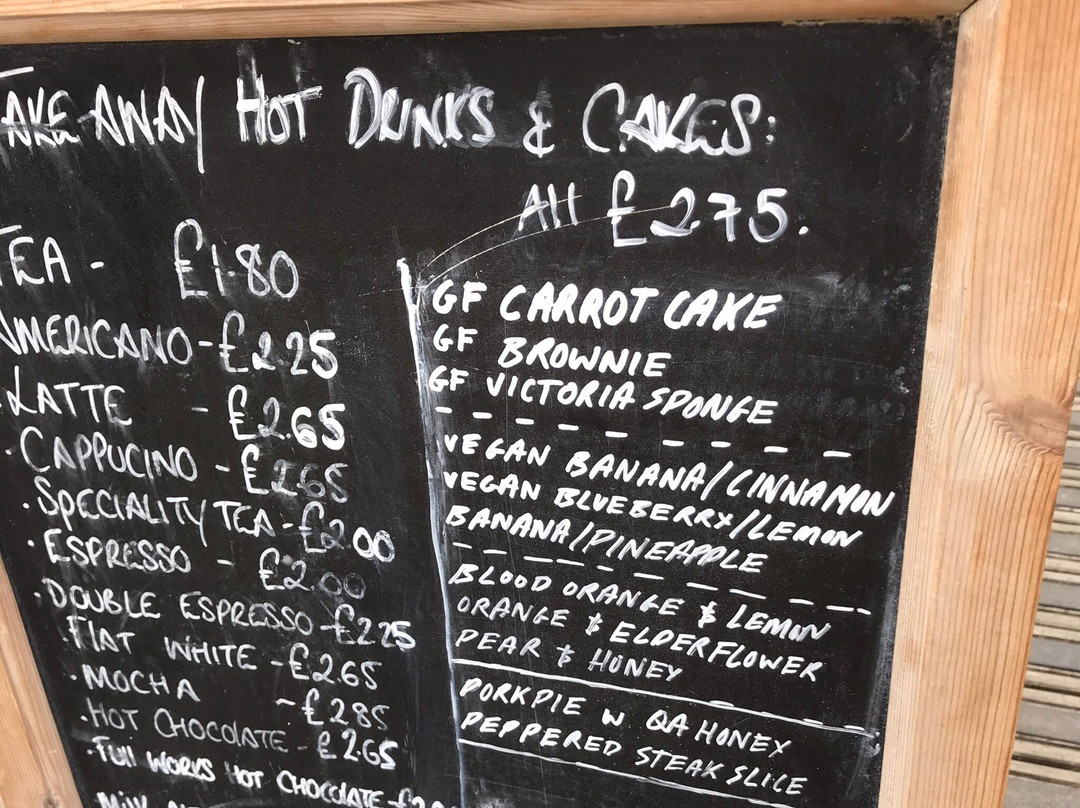 TAKE AWAY HOT DRINKS & CAKES:
All £2.75.
TEA - £1.80
AMERICANO - £2.25
LATTE - £2.65
CAPPUCINO - £2.65
SPECIALITY TEA - £2.00
ESPRESSO - £2.00
DOUBLE ESPRESSO - £2.25
FLAT WHITE - £2.65
MOCHA - £2.85
HOT CHOCOLATE - £2.65
FULL WORKS HOT CHOCOLATE -
GF CARROT CAKE
GF BROWNIE
GF VICTORIA SPONGE
VEGAN BANANA/CINNAMON
VEGAN BLUEBERRY/LEMON
BANANA/PINEAPPLE
BLOOD ORANGE & LEMON
ORANGE & ELDERFLOWER
PEAR & HONEY
PORKPIE w QA HONEY
PEPPERED STEAK SLICE